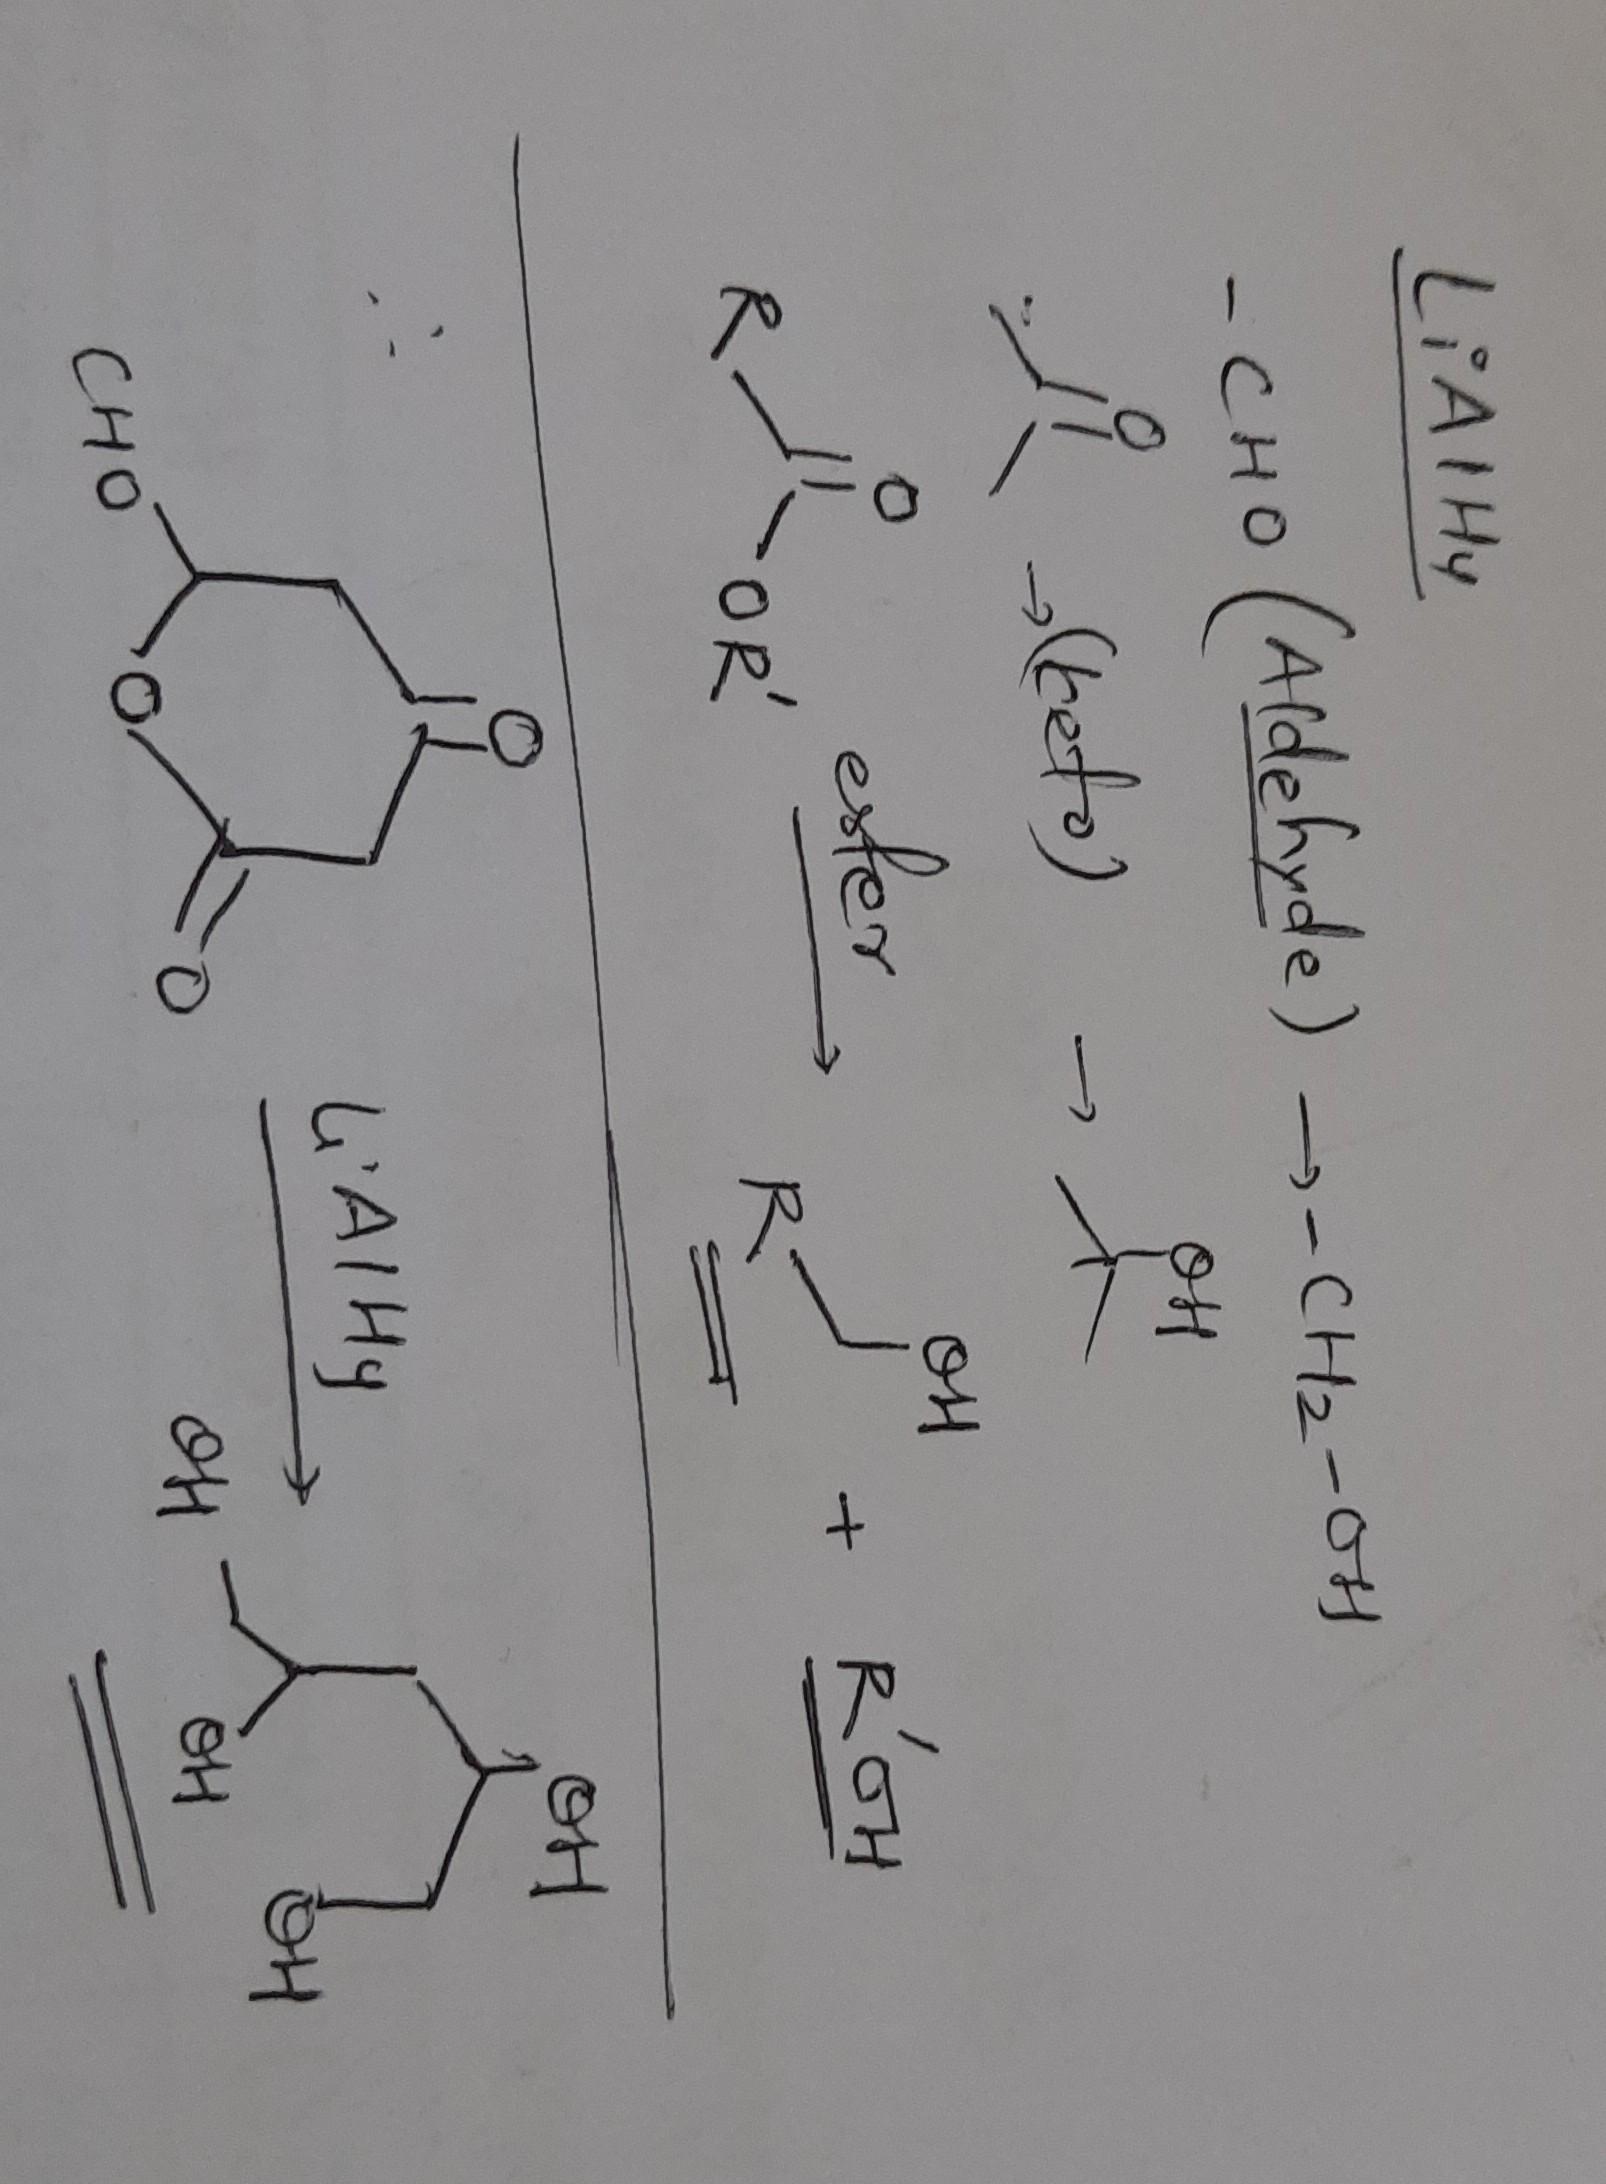 LiAlH4
-CHO (Aldehyde) → -CH2-OH
O → (keto) → OH
R O OR' ester → R OH + R'OH
CHO O O O LiAlH4 → OH OH OH OH